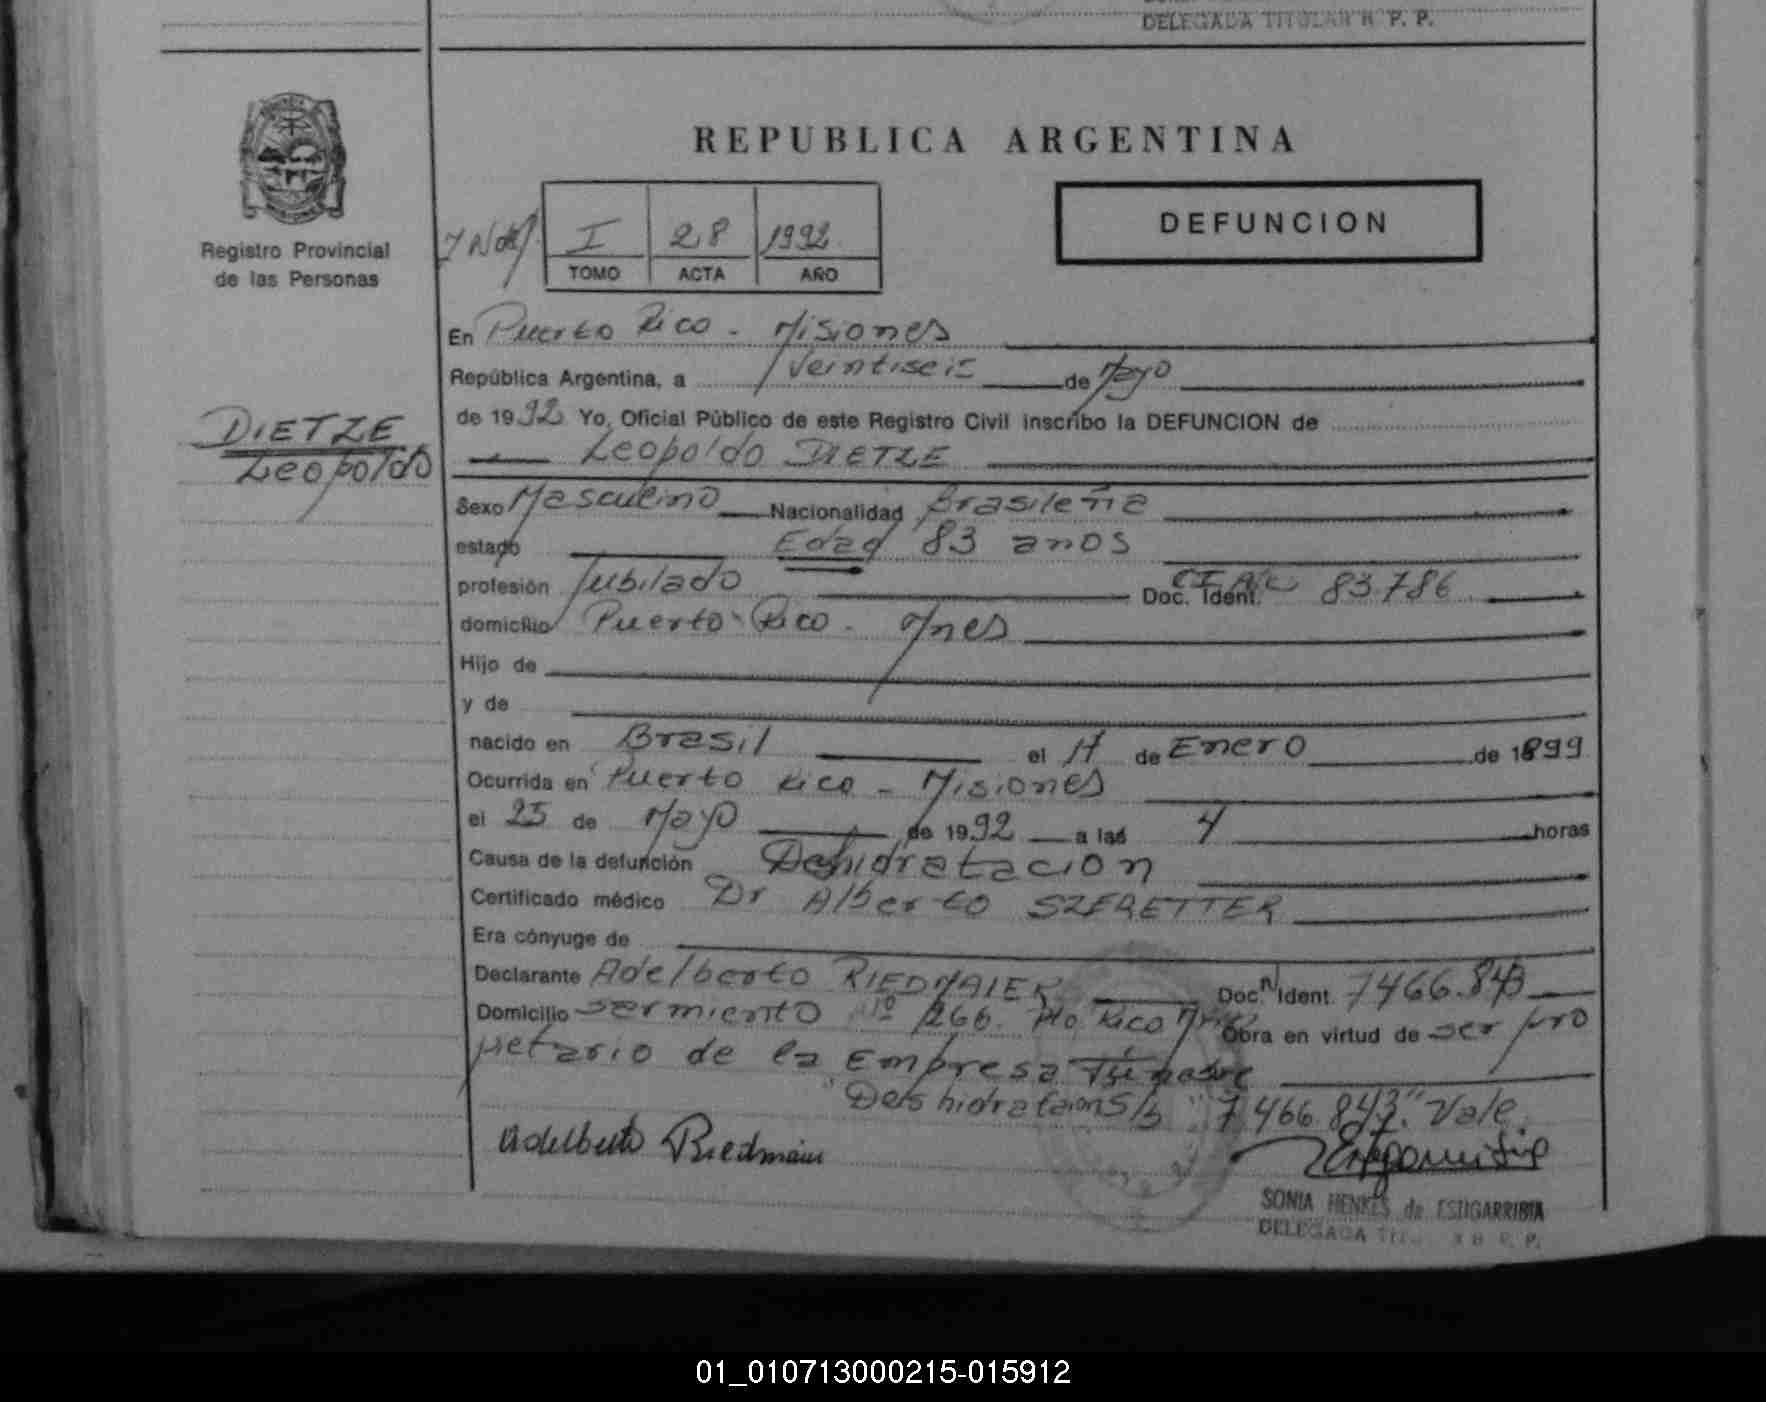 DELEGADA TITULAR R P. P.
REPUBLICA ARGENTINA
DEFUNCION
I 28 1992
TOMO ACTA AÑO
Registro Provincial
de las Personas
En Puerto Rico - Misiones
República Argentina, a Veintiseis de Mayo
de 1992 Yo, Oficial Público de este Registro Civil inscribo la DEFUNCION de
Leopoldo DIETZE
DIETZE
Leopoldo
Sexo Masculino Nacionalidad Brasileña
estado Edad 83 anos
profesión Jubilado Doc. Ident. CI 83.786
domicilio Puerto Rico - Mnes
Hijo de
y de
nacido en Brasil el 17 de Enero de 1899
Ocurrida en Puerto Rico - Misiones
el 25 de Mayo de 1992 a las 4 horas
Causa de la defunción Dehidratacion
Certificado médico Dr Alberto SZERETTER
Era cónyuge de
Declarante Adelberto RIEDMAIER Doc. Ident. 7466.843
Domicilio Sarmiento Nº 1266. Pto Rico Mnes Obra en virtud de ser pro
pietario de la Empresa Fúnebre
"Deshidratacion S/b "7.466.843" Vale.
Adelberto Riedmaier
SONIA HENKES de ESTIGARRIBIA
DELEGADA TIT R P. P.
01_010713000215-015912